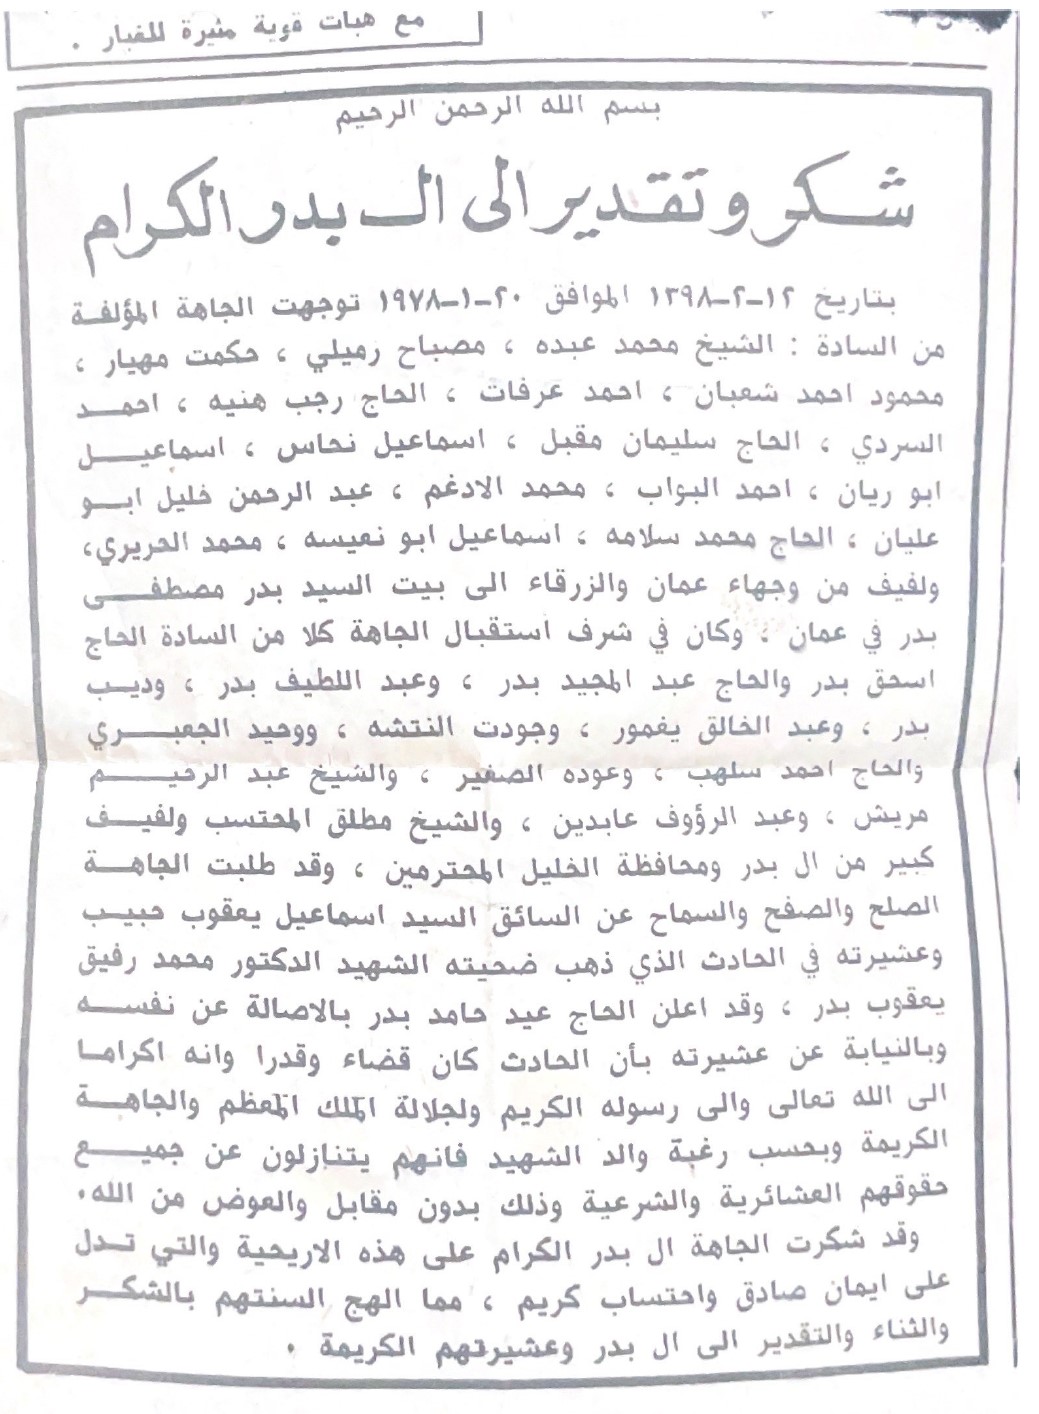 مع هبات قوية مثيرة للغبار .
بسم الله الرحمن الرحيم
شكر وتقدير الى ال بدر الكرام
بتاريخ ١٢-٢-١٣٩٨ الموافق ٢٠-١-١٩٧٨ توجهت الجاهة المؤلفة
من السادة : الشيخ محمد عبده ، مصباح رميلي ، حكمت مهيار ،
محمود احمد شعبان ، احمد عرفات ، الحاج رجب هنيه ، احمد
السردي ، الحاج سليمان مقبل ، اسماعيل نحاس ، اسماعيل
ابو ريان ، احمد البواب ، محمد الادغم ، عبد الرحمن خليل ابو
عليان ، الحاج محمد سلامه ، اسماعيل ابو نعيسه ، محمد الحريري،
ولفيف من وجهاء عمان والزرقاء الى بيت السيد بدر مصطفى
بدر في عمان ، وكان في شرف استقبال الجاهة كلا من السادة الحاج
اسحق بدر والحاج عبد المجيد بدر ، وعبد اللطيف بدر ، وديب
بدر ، وعبد الخالق يغمور ، وجودت النتشه ، ووحيد الجعبري
والحاج احمد سلهب ، وعوده الصغير ، والشيخ عبد الرحيم
مريش ، وعبد الرؤوف عابدين ، والشيخ مطلق المحتسب ولفيف
كبير من ال بدر ومحافظة الخليل المحترمين ، وقد طلبت الجاهة
الصلح والصفح والسماح عن السائق السيد اسماعيل يعقوب حبيب
وعشيرته في الحادث الذي ذهب ضحيته الشهيد الدكتور محمد رفيق
يعقوب بدر ، وقد اعلن الحاج عيد حامد بدر بالاصالة عن نفسه
وبالنيابة عن عشيرته بأن الحادث كان قضاء وقدرا وانه اكراما
الى الله تعالى والى رسوله الكريم ولجلالة الملك المعظم والجاهة
الكريمة وبحسب رغبة والد الشهيد فانهم يتنازلون عن جميع
حقوقهم العشائرية والشرعية وذلك بدون مقابل والعوض من الله.
وقد شكرت الجاهة ال بدر الكرام على هذه الاريحية والتي تدل
على ايمان صادق واحتساب كريم ، مما الهج السنتهم بالشكر
والثناء والتقدير الى ال بدر وعشيرتهم الكريمة .